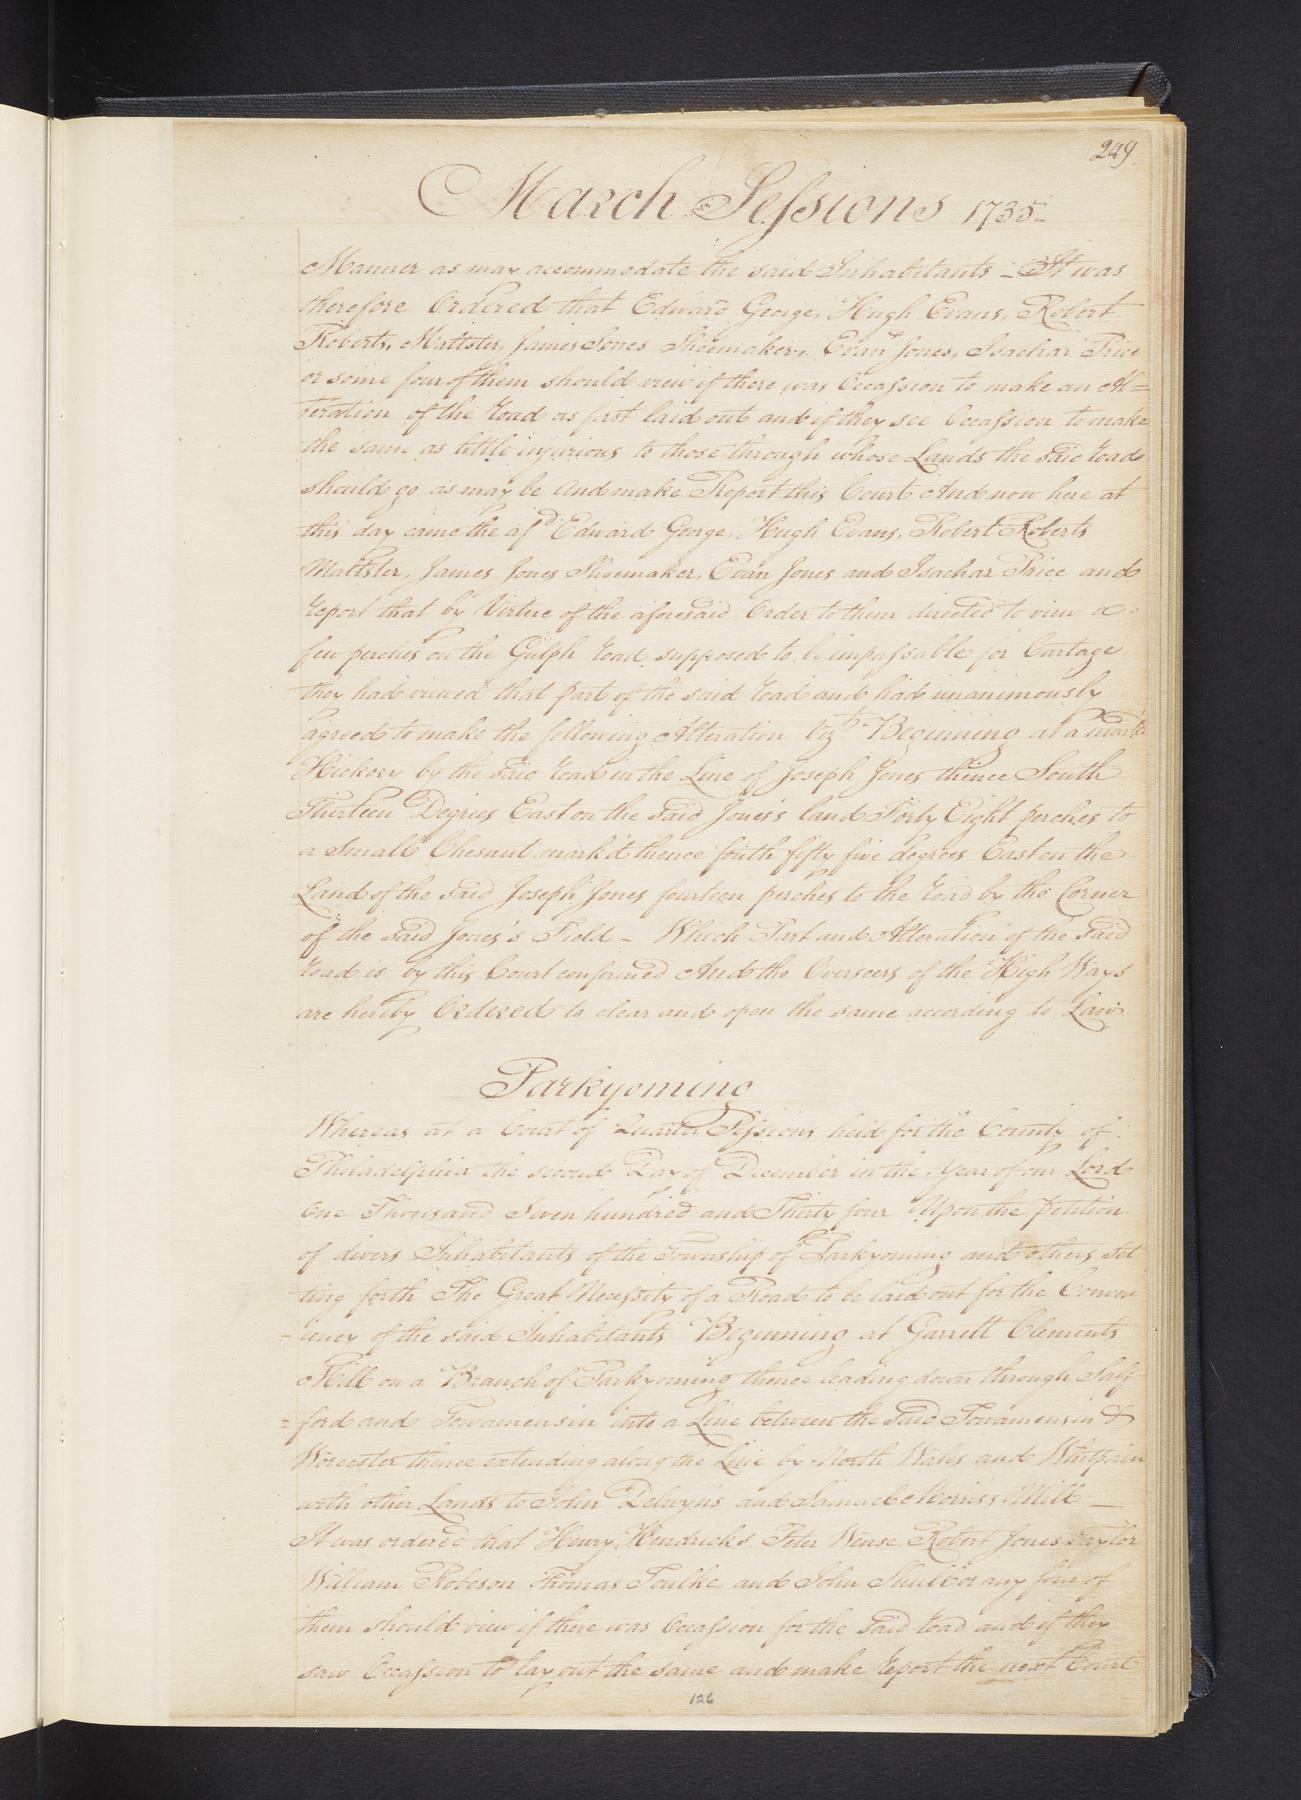 249
March Sessions 1735
Manner as may accommodate the said Inhabitants - It was
therefore Ordered that Edward George, Hugh Evans, Robert
Roberts, Maltster, James Jones Shoemaker, Evan Jones, Isachar Price
or some four of them should view if there was Occassion to make an Al=
teration of the road as first laid out and if they see Occassion to make
the same as little injurious to those through whose Lands the said road
should go as may be And make Report this Court And now here at
this day came the afd Edward George, Hugh Evans, Robert Roberts
Maltster, James Jones Shoemaker, Evan Jones and Isachar Price and
report that by Virtue of the aforesaid Order to them directed to view a
few perches on the Gulph road supposed to be impassable for Cartage
they had viewed that part of the said road and had unanimously
agreed to make the following Alteration Vizt Beginning at a mark'd
Hickory by the said road in the Line of Joseph Jones thence South
Thirteen Degrees East on the said Jones's land Forty Eight perches to
a Small Chesnut mark'd thence south fifty five degrees East on the
Land of the said Joseph Jones fourteen perches to the road by the Corner
of the said Jones's Field - Which Part and Alteration of the said
road is by this Court confirmed And the Overseers of the High Ways
are hereby Ordered to clear and open the same according to Law
Parkyoming
Whereas at a Court of Quarter Sessions held for the County of
Philadelphia the second Day of December in the Year of our Lord
One Thousand Seven hundred and Thirty four Upon the petition
of divers Inhabitants of the Township of Parkyoming and others set
ting forth The Great Necessity of a Road to be laid out for the Conven
-iency of the said Inhabitants Beginning at Garrett Clements
Mill on a Branch of Parkyoming thence leading down through Salf
=ford and Towamensin into a Line between the said Towamensin &
Worcester thence extending along the Line by North Wales and Whitpain
with other Lands to John and Samuel Morris's Mill -
It was ordered that Henry Hendricks, Peter Wense Robert Jones Taylor
William Roberson Thomas Foulke and John Shull or any four of
them should view if there was Occassion for the said road and if they
saw Occassion to lay out the same and make report the next Court
126